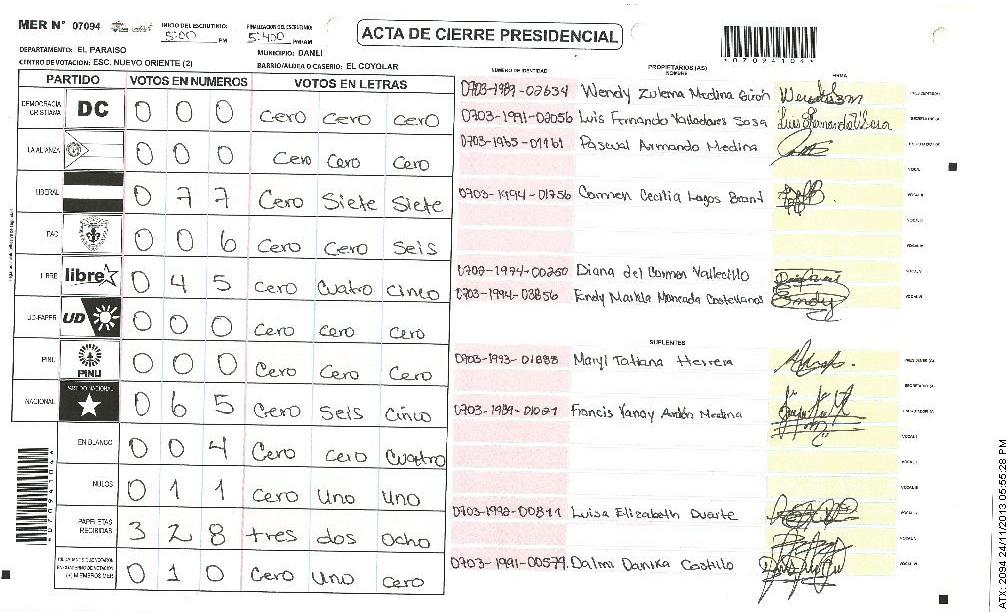 MER N° 07094
INICIO DEL ESCRUTINIO: 5:00 PM
FINALIZACION DEL ESCRUTINIO: 5:400 PM/AM
ACTA DE CIERRE PRESIDENCIAL
DEPARTAMENTO: EL PARAISO
MUNICIPIO: DANLI
CENTRO DE VOTACION: ESC. NUEVO ORIENTE (2)
BARRIO/ALDEA O CASERIO: EL COYOLAR
PARTIDO VOTOS EN NUMEROS VOTOS EN LETRAS
DEMOCRACIA CRISTIANA DC 0 0 0 Cero Cero Cero
LA ALIANZA 0 0 0 Cero Cero Cero
LIBERAL 0 7 7 Cero Siete Siete
PAC 0 0 6 Cero Cero Seis
LIBRE libre 0 4 5 Cero Cuatro Cinco
UD-FAPER UD 0 0 0 Cero Cero Cero
PINU PINU 0 0 0 Cero Cero Cero
NACIONAL PARTIDO NACIONAL 0 6 5 Cero Seis Cinco
EN BLANCO 0 0 4 Cero Cero Cuatro
NULOS 0 1 1 Cero Uno Uno
PAPELETAS RECIBIDAS 3 2 8 tres dos ocho
(+) MIEMBROS MER 0 1 0 Cero Uno Cero
NUMERO DE IDENTIDAD PROPIETARIOS (AS) NOMBRE FIRMA
0703-1989-02634 Wendy Zulema Medina Giron
0703-1991-02056 Luis Fernando Valladares Sosa Luis Fernando V Sosa
0703-1965-01161 Pascual Armando Medina
0703-1994-01756 Carmen Cecilia Lagos Brant
0702-1974-00250 Diana del Carmen Vallecillo
0703-1994-03856 Endy Markla Moncada Castellanos Endy
SUPLENTES
0703-1993-01888 Maryi Tatiana Herrera
0703-1989-01021 Francis Yanay Ardón Medina
0703-1992-00811 Luisa Elizabeth Duarte
0703-1991-00579 Dalmi Danixa Castillo
*07094104*
ATX: 2094 24/11/2013 05:55:28 PM